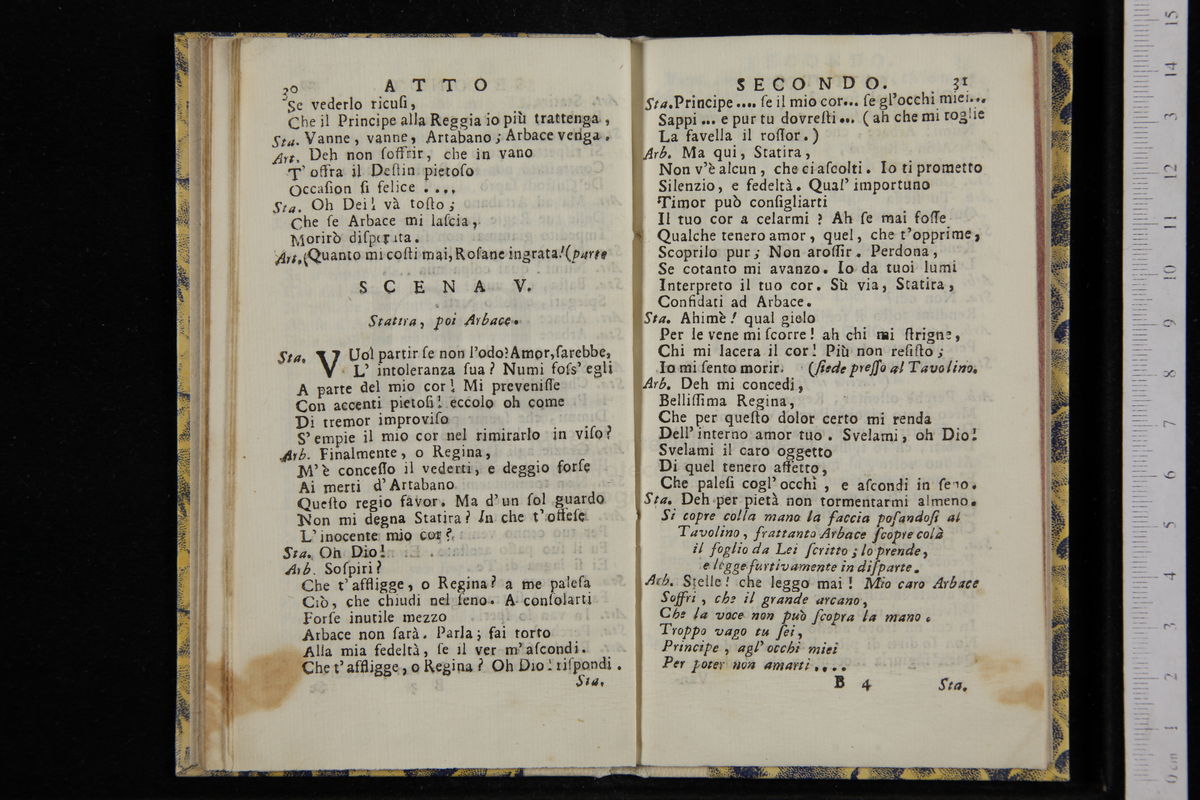 30 ATTO
Se vederlo ricuſi,
Che il Principe alla Reggia io più trattenga,
Sta. Vanne, vanne, Artabano; Arbace venga.
Art. Deh non ſoffrir, che in vano
T' offra il Deſtin pietoſo
Occaſion ſi felice ....
Sta. Oh Dei! và toſto;
Che ſe Arbace mi laſcia,
Morirò diſperata.
Art. (Quanto mi coſti mai, Roſane ingrata! (parte
SCENA V.
Statira, poi Arbace.
Sta. VUol partir ſe non l'odo? Amor, ſarebbe,
L' intoleranza ſua? Numi foſs' egli
A parte del mio cor! Mi preveniſſe
Con accenti pietoſi! eccolo oh come
Di tremor improviſo
S' empie il mio cor nel rimirarlo in viſo?
Arb. Finalmente, o Regina,
M'è conceſſo il vederti, e deggio forſe
Ai merti d'Artabano
Queſto regio favor. Ma d'un ſol guardo
Non mi degna Statira? In che t'offeſe
L' inocente mio cor?
Sta. Oh Dio!
Arb. Soſpiri?
Che t'affligge, o Regina? a me paleſa
Ciò, che chiudi nel ſeno. A conſolarti
Forſe inutile mezzo
Arbace non ſarà. Parla; fai torto
Alla mia fedeltà, ſe il ver m'aſcondi.
Che t'affligge, o Regina? Oh Dio! riſpondi.
Sta.
SECONDO. 31
Sta. Principe .... ſe il mio cor... ſe gl'occhi miei...
Sappi ... e pur tu dovreſti ... (ah che mi toglie
La favella il roſſor.)
Arb. Ma qui, Statira,
Non v'è alcun, che ci aſcolti. Io ti prometto
Silenzio, e fedeltà. Qual' importuno
Timor può conſigliarti
Il tuo cor a celarmi? Ah ſe mai foſſe
Qualche tenero amor, quel, che t'opprime,
Scoprilo pur; Non aroſſir. Perdona,
Se cotanto mi avanzo. Io da tuoi lumi
Interpreto il tuo cor. Sù via, Statira,
Confidati ad Arbace.
Sta. Ahimè! qual gielo
Per le vene mi ſcorre! ah chi mi ſtrigne,
Chi mi lacera il cor! Più non reſiſto;
Io mi ſento morir. (ſiede preſſo al Tavolino.
Arb. Deh mi concedi,
Belliſſima Regina,
Che per queſto dolor certo mi renda
Dell'interno amor tuo. Svelami, oh Dio!
Svelami il caro oggetto
Di quel tenero affetto,
Che paleſi cogl'occhi, e aſcondi in ſeno.
Sta. Deh per pietà non tormentarmi almeno.
Si copre colla mano la faccia poſandoſi al
Tavolino, frattanto Arbace ſcopre colà
il foglio da Lei ſcritto; lo prende,
e legge furtivamente in diſparte.
Arb. Stelle! che leggo mai! Mio caro Arbace
Soffri, che il grande arcano,
Che la voce non può ſcopra la mano.
Troppo vago tu ſei,
Principe, agl'occhi miei
Per poter non amarti ....
B 4 Sta.